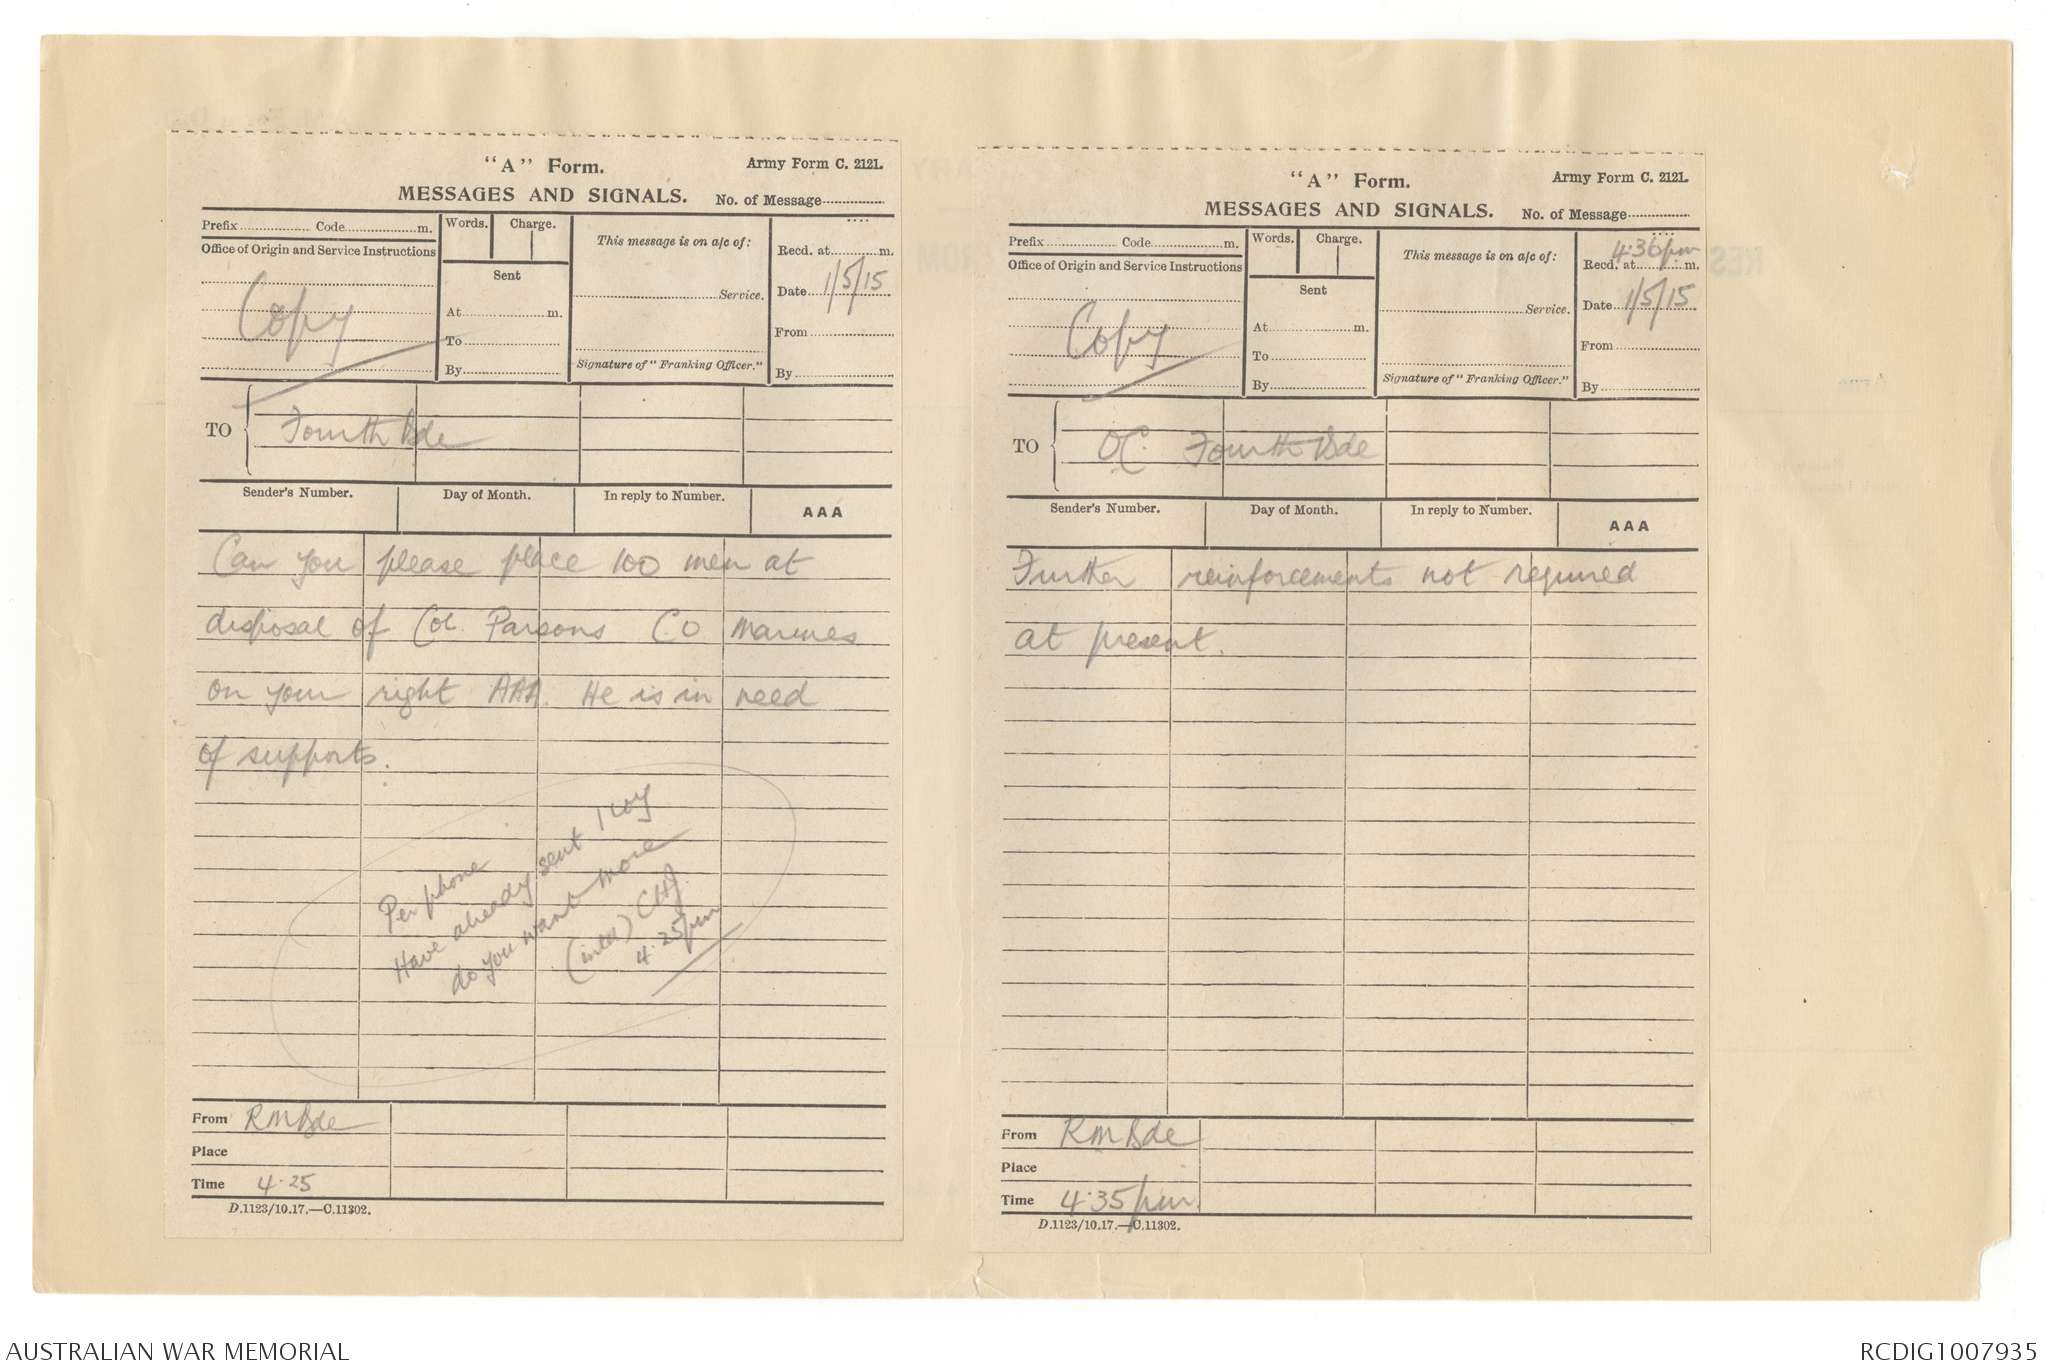 "A" Form.
Army Form C. 2121.
MESSAGES AND SIGNALS.
No. of Message
Prefix Code m.
Office of Origin and Service Instructions
Copy
Words. Charge.
Sent
At m.
To
By
This message is on a/c of:
Service.
Signature of "Franking Officer."
Recd. at m.
Date 1/5/15
From
By
TO Fourth Bde
Sender's Number. Day of Month. In reply to Number. AAA
Can you please place 100 men at
disposal of Col. Parsons CO Marines
on your right AAA. He is in need
of supports.
Per phone
Have already sent 1 coy
do you want more
(intld) CHJ.
4.25pm
From RMBde
Place
Time 4.25
D.1123/10.17.—C.11302.
"A" Form.
Army Form C. 2121.
MESSAGES AND SIGNALS.
No. of Message
Prefix Code m.
Office of Origin and Service Instructions
Copy
Words. Charge.
Sent
At m.
To
By
This message is on a/c of:
Service.
Signature of "Franking Officer."
Recd. at 4.36pm m.
Date 1/5/15
From
By
TO OC. Fourth Bde
Sender's Number. Day of Month. In reply to Number. AAA
Further reinforcements not required
at present.
From RM Bde
Place
Time 4.35pm.
D.1123/10.17.—C.11302.
AUSTRALIAN WAR MEMORIAL
RCDIG1007935